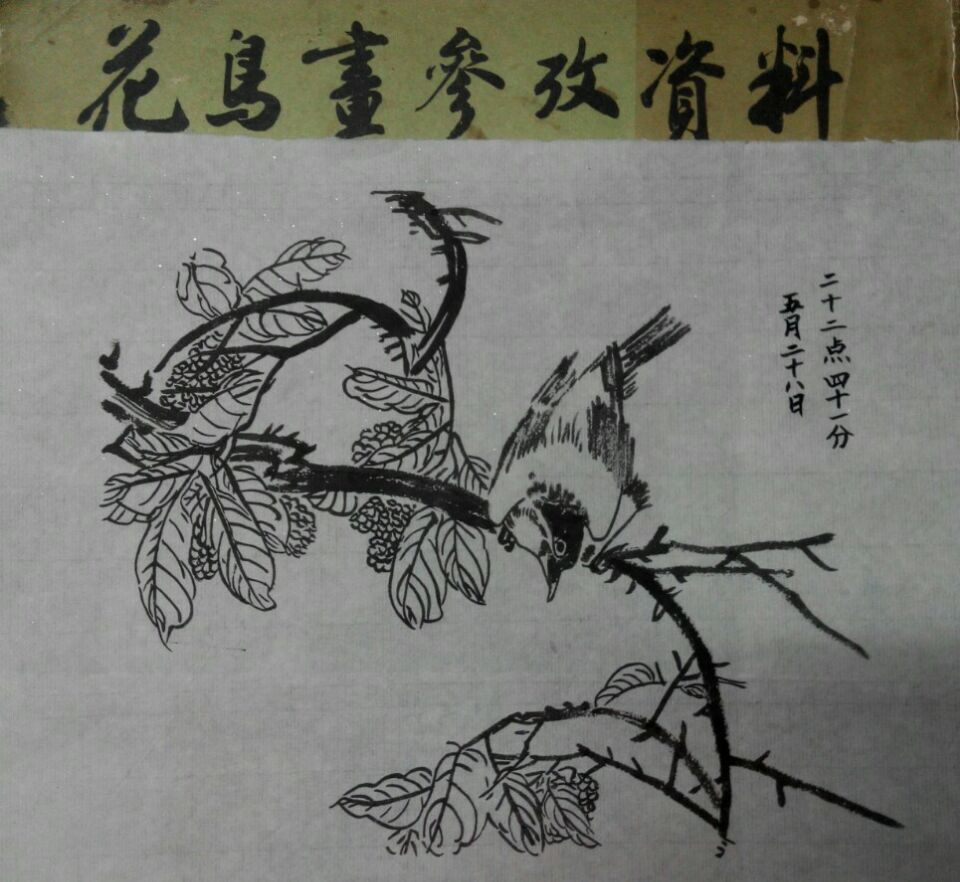 花鳥畫參攷資料
二十二点四十一分
五月二十八日